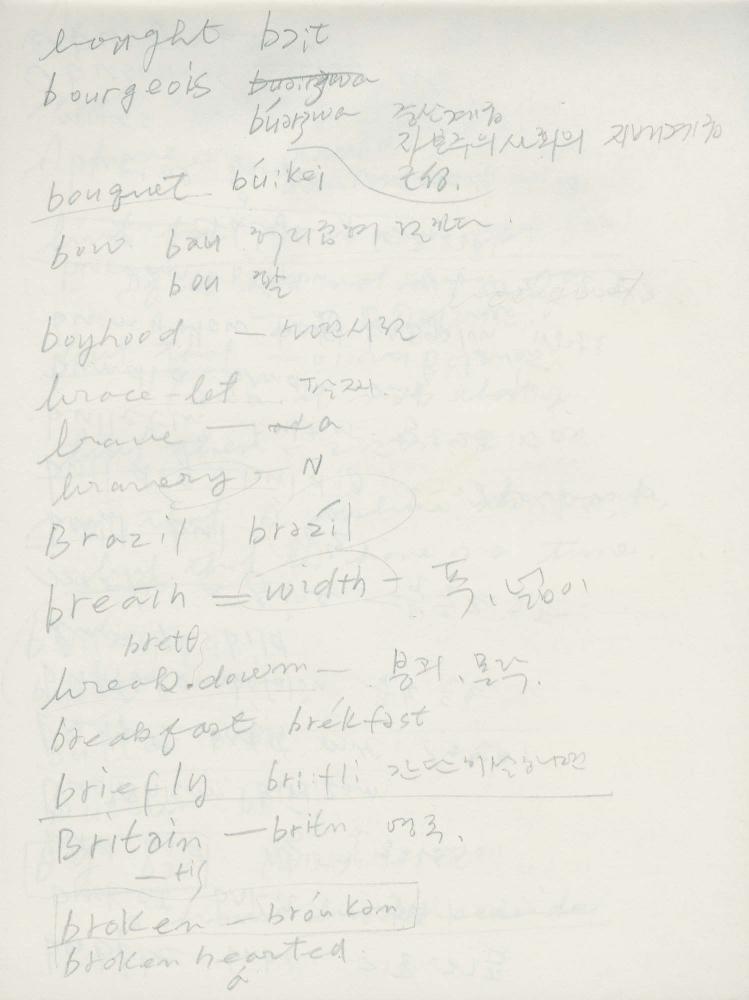 bought bɔːt
bourgeois
búərʒwa 중산계층
자본주의사회의 지배계층
bouquet búːkei 근성.
bow bau 허리굽혀 절하다.
bou 활
boyhood — 소년시절
brace-let 팔찌.
brave — a
bravery — N
Brazil brəzíl
breath = width - 폭, 넓이
bretθ
break.down — 붕괴, 몰락.
breakfast brékfəst
briefly briːfli 간단히 말하면
Britain — britn 영국.
— tiʃ
broken — bróukən
broken hearted
a